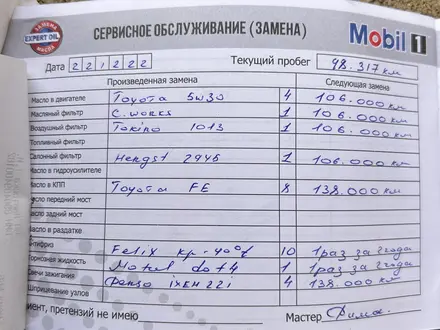 ЗАМЕНА EXPERT OIL МАСЛА СЕРВИСНОЕ ОБСЛУЖИВАНИЕ (ЗАМЕНА) Mobil 1
Дата 221222 Текущий пробег 98.317 км
Произведенная замена Следующая замена
Масло в двигателе Toyota 5w30 4 106.000 км
Масляный фильтр C.works 1 106.000 км
Воздушный фильтр Tokino 1013 1 106.000 км
Топливный фильтр
Салонный фильтр Hengst 2945 1 106.000 км
Масло в гидроусилителе
Масло в КПП Toyota FE 8 138.000 км
Масло передний мост
Масло задний мост
Масло в раздатке
Антифриз Felix кр-40°С 10 1 раз за 2 года
Тормозная жидкость Motul dot4 1 1 раз за 2 года
Свечи зажигания Денсо ixEH22i 4 138.000 км
Шприцевание узлов
иент, претензий не имею Мастер